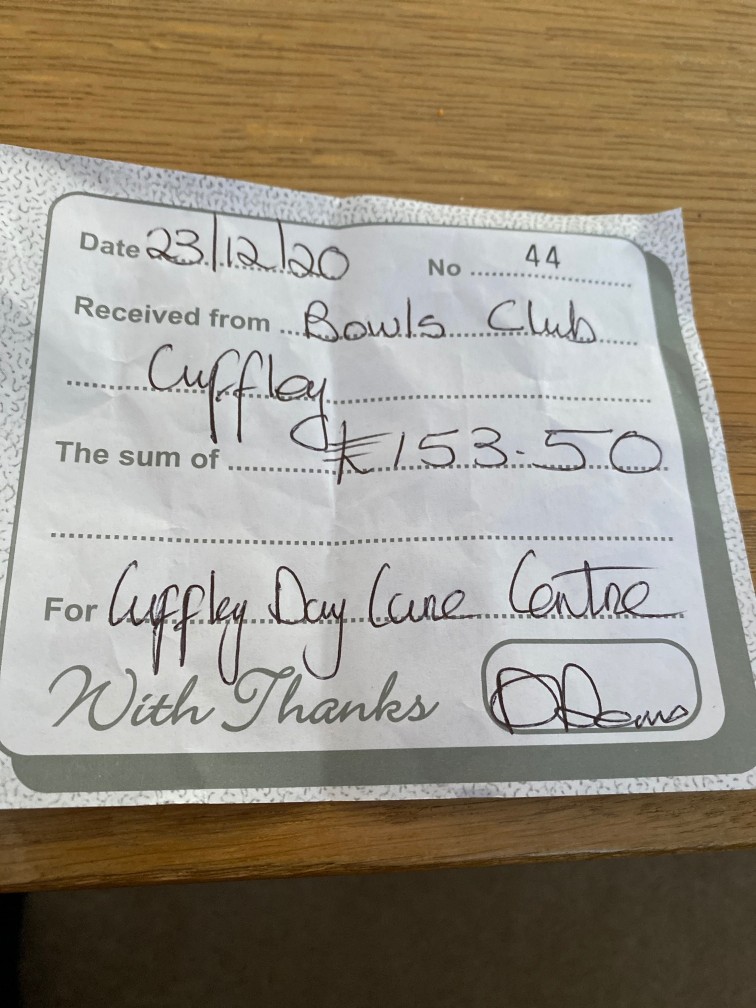 Date 23/12/20 No 44
Received from Bowls Club
Cuffley
The sum of £153.50
For Cuffley Day Care Centre
With Thanks